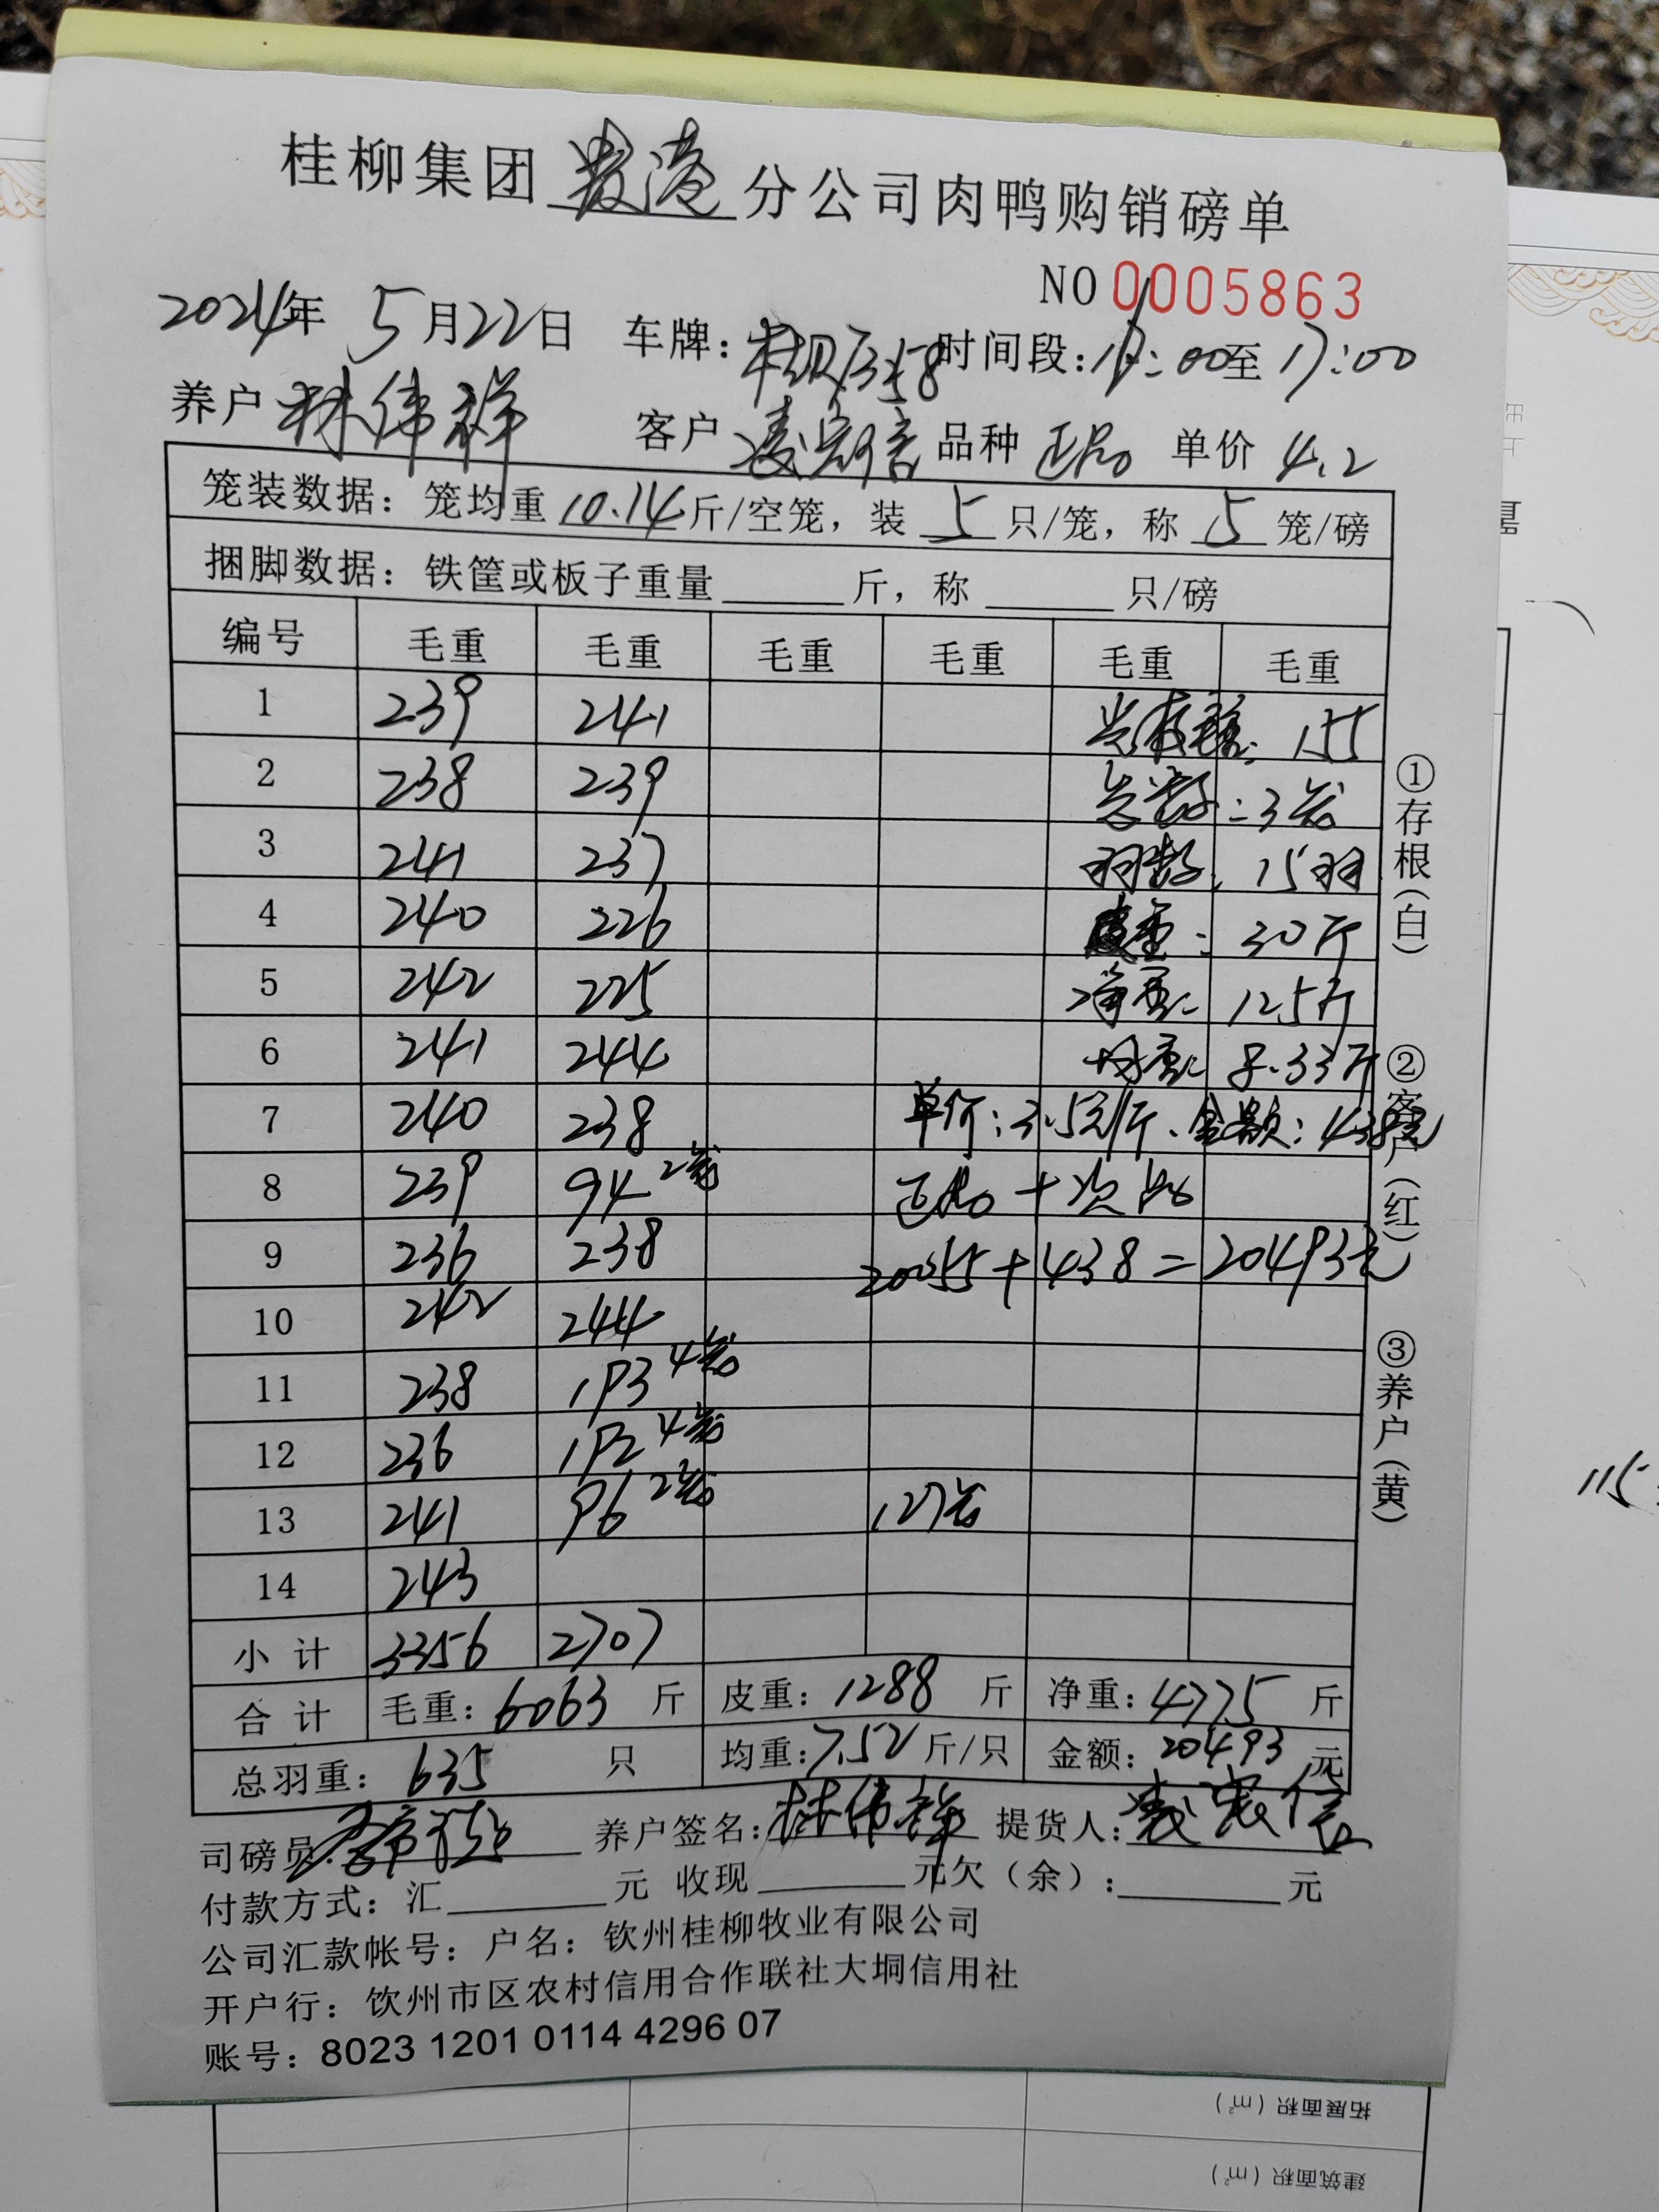 桂柳集团贵港分公司肉鸭购销磅单
NO 0005863
2024年 5月22日 车牌: 时间段: :00至17:00
养户 林伟祥 客户 凌宗信 品种 正品 单价 4.2
笼装数据：笼均重 10.14 斤/空笼，装 5 只/笼，称 5 笼/磅
捆脚数据：铁筐或板子重量______斤，称______只/磅
编号 毛重 毛重 毛重 毛重 毛重 毛重
1 239 241 155
2 238 239 :3笼
3 241 237 羽数: 15羽
4 240 226 皮重: 30斤
5 242 225 净重: 125斤
6 241 244 均重: 8.33斤
7 240 238 单价:3.5元/斤. 金额:438元
8 239 94 2笼 正品+次品
9 236 238 20055+438=20493元
10 242 244
11 238 193 4笼
12 236 192 4笼
13 241 96 2笼 127笼
14 243
小计 3356 2707
合计 毛重: 6063 斤 皮重: 1288 斤 净重: 4775 斤
总羽重: 635 只 均重: 7.52 斤/只 金额: 20493 元
司磅员: 养户签名: 林伟祥 提货人:
付款方式：汇______元 收现______元欠（余）:______元
公司汇款帐号：户名：钦州桂柳牧业有限公司
开户行：钦州市区农村信用合作联社大垌信用社
账号：8023 1201 0114 4296 07
①存根(白) ②客户(红) ③养户(黄)
115
拓展面积（m²）
建筑面积（m²）